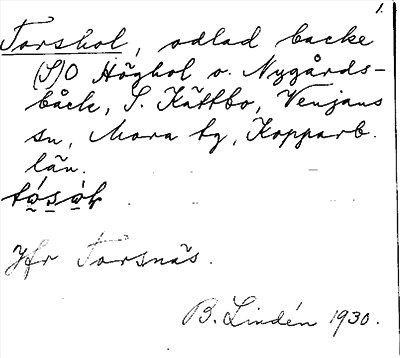 1.
Torshol, odlad backe
(S)O Höghol o. Nygårds-
bäck, S. Kättbo, Venjans
sn, Mora tg, Kopparb.
län.
Jfr Torsnäs.
B. Lindén 1930.